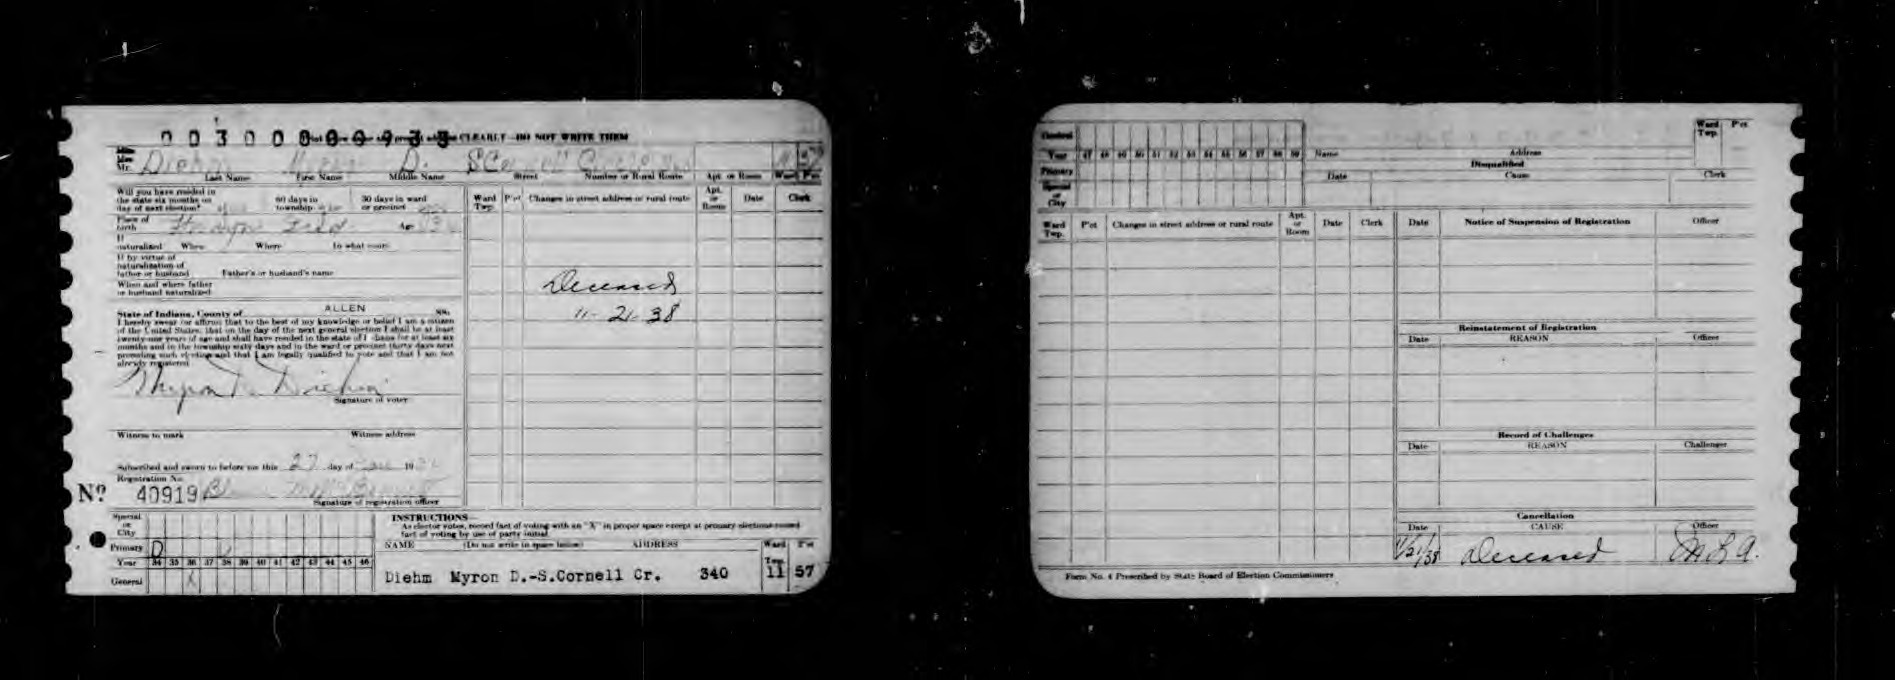 0030000093
CLEARLY—DO NOT WRITE THEM
Miss
Mrs.
Mr. Diehm Myron D. S Cornell Circle 340 11 57
Last Name First Name Middle Name Street Number or Rural Route Apt. or Room Ward P'ct
Will you have resided in the state six months on day of next election? yes 60 days in township yes 30 days in ward or precinct
Place of birth Ind Age
If naturalized When Where In what court
If by virtue of naturalization of father or husband Father's or husband's name
When and where father or husband naturalized
State of Indiana, County of ALLEN SS:
I hereby swear (or affirm) that to the best of my knowledge or belief I am a citizen
of the United States; that on the day of the next general election I shall be at least
twenty-one years of age and shall have resided in the state of Indiana for at least six
months and in the township sixty days and in the ward or precinct thirty days next
preceding such election and that I am legally qualified to vote and that I am not
already registered.
Myron D. Diehm
Signature of voter
Witness to mark Witness address
Subscribed and sworn to before me this 27 day of 19
Registration No.
Nº 40919
Signature of registration officer
Ward Twp. P'ct Changes in street address or rural route Apt. or Room Date Clerk
Deceased
11-21-38
Special or City
Primary D
Year 34 35 36 37 38 39 40 41 42 43 44 45 46
General X
INSTRUCTIONS—
As elector votes, record fact of voting with an "X" in proper space except at primary elections record
fact of voting by use of party initial.
NAME (Do not write in space below) ADDRESS Ward Twp. P'ct
Diehm Myron D.-S.Cornell Cr. 340 11 57
General
Year 47 48 49 50 51 52 53 54 55 56 57 58 59
Primary
Special or City
Name Address Ward Twp. P'ct
Disqualified
Date Cause Clerk
Ward Twp. P'ct Changes in street address or rural route Apt. or Room Date Clerk
Date Notice of Suspension of Registration Officer
Reinstatement of Registration
Date REASON Officer
Record of Challenges
Date REASON Challenger
Cancellation
Date CAUSE Officer
11/21/38 Deceased M L A.
Form No. 4 Prescribed by State Board of Election Commissioners